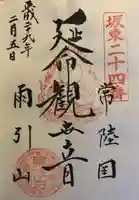 坂東二十四番
常陸国
延命観世音
平成二十九年
二月五日
雨引山